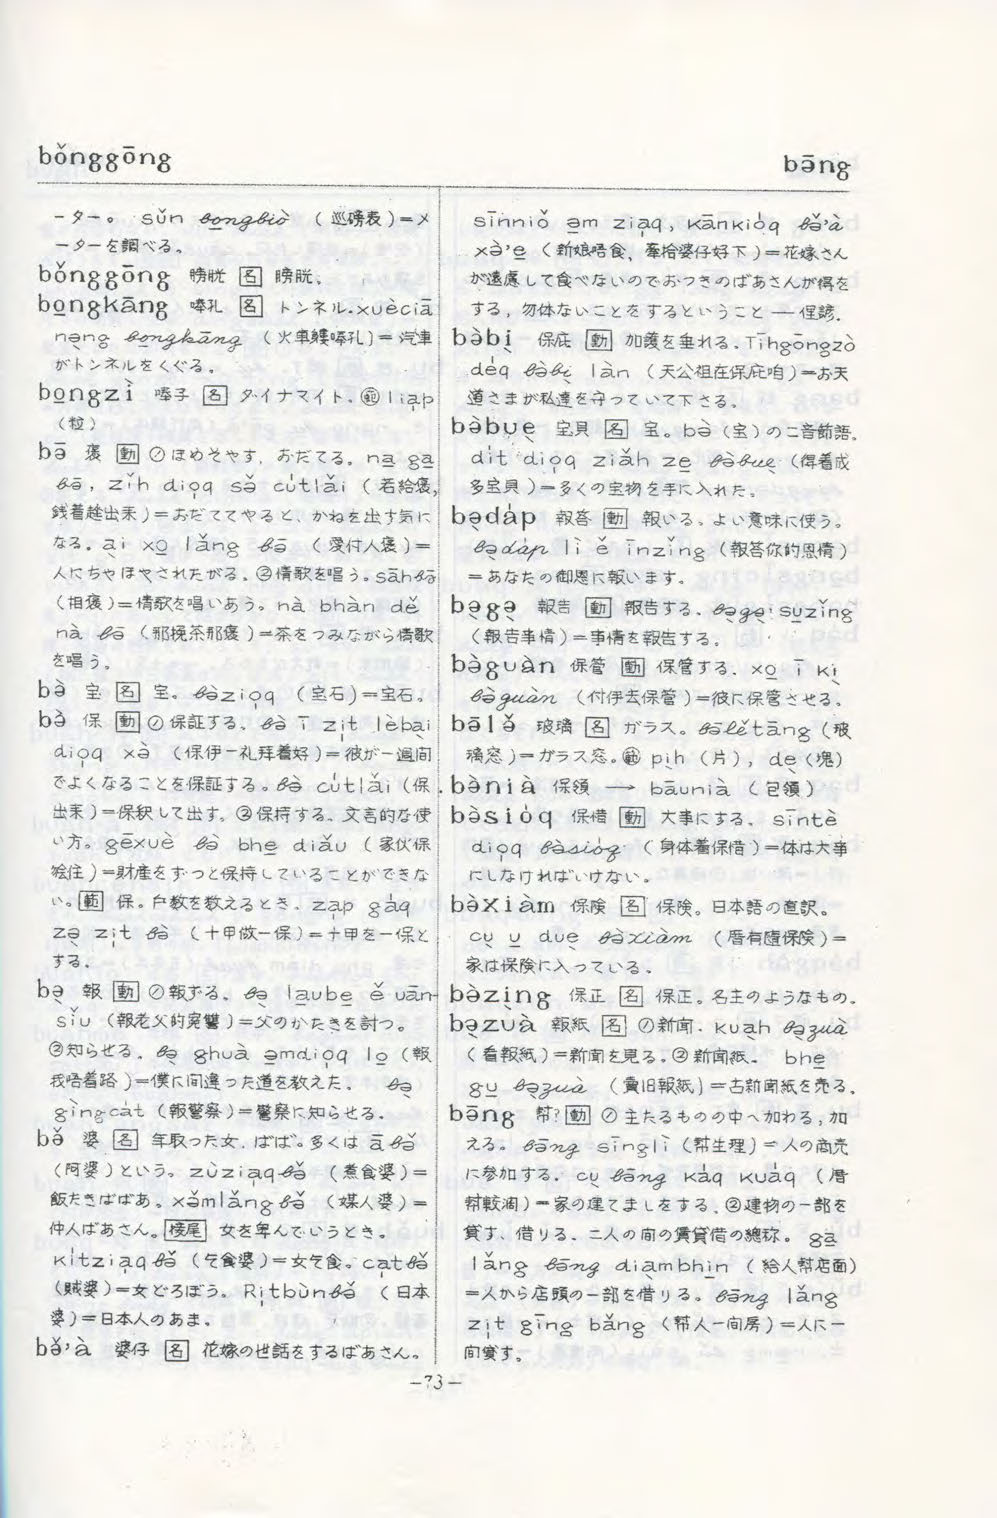 bǒnggōng
bāng
ーター。sǔn bongbiò (巡磅表)=メ
ーターを調べる。
bǒnggōng 膀胱 [名] 膀胱。
bo̱ngkāng 嗙孔 [名] トンネル。xuèciā
nəng bo̱ngkāng (火車䠣嗙孔)=汽車
がトンネルをくぐる。
bo̱ngzì 嗙子 [名] ダイナマイト。範 liap
(粒)
bə̄ 褒 [動] ①ほめそやす。おだてる。na̱ ga̱
bə̄, zǐh dioq sə̌ cútlǎi (若給褒,
銭着趖出来)=おだててやると、かねを出す気に
なる。ai xo̱ lǎng bə̄ (愛付人褒)=
人にちやほやされたがる。②情歌を唱う。sāhbə̄
(相褒)=情歌を唱いあう。nà bhàn dě
nà bə̄ (那挽茶那褒)=茶をつみながら情歌
を唱う。
bə̀ 宝 [名] 宝。bə̀zioq (宝石)=宝石。
bə̀ 保 [動] ①保証する。bə̀ ī zit lèbai
dioq xə̀ (保伊一礼拜着好)=彼が一週間
でよくなることを保証する。bə̀ cútlǎi (保
出来)=保釈して出す。②保持する。文言的な使
い方。gēxuè bə̀ bhe̱ diǎu (家伙保
𣍐住)=財産をずっと保持していることができな
い。[範] 保。戸数を数えるとき。zap gáq
zə zit bə̀ (十甲做一保)=十甲を一保と
する。
bə 報 [動] ①報ずる。bə la̱ube̱ ě uān-
siǔ (報老父的冤讐)=父のかたきを討つ。
②知らせる。bə ghuà əmdioq lo̱ (報
我唔着路)=僕に間違った道を教えた。bə
gìngcát (報警察)=警察に知らせる。
bə̌ 婆 [名] 年取った女。ばば。多くは ābə̌
(阿婆)という。zùziaqbə̌ (煮食婆)=
飯たきばばあ。xə̌mlǎngbə̌ (媒人婆)=
仲人ばあさん。[接尾] 女を卑んでいうとき。
kítziaqbə̌ (乞食婆)=女乞食。catbə̌
(賊婆)=女どろぼう。Ritbùnbə̌ (日本
婆)=日本人のあま。
bə̌'à 婆仔 [名] 花嫁の世話をするばあさん。
sīnniǒ əm ziaq, kānkióq bə̌'à
xə̀'e̱ (新娘唔食,牽拾婆仔好下)=花嫁さん
が遠慮して食べないのでおつきのばあさんが得を
する,勿体ないことをするということ―俚諺。
bə̀bi 保庇 [動] 加護を垂れる。Tīhgōngzò
déq bə̀bi làn (天公祖在保庇咱)=お天
道さまが私達を守っていて下さる。
bə̀bue 宝貝 [名] 宝。bə̀ (宝)の二音節語。
dít dioq ziə̌h ze̱ bə̀bue (得着成
多宝貝)=多くの宝物を手に入れた。
bədáp 報答 [動] 報いる。よい意味に使う。
bədáp lì ě īnzǐng (報答你的恩情)
=あなたの御恩に報います。
bəgə 報告 [動] 報告する。bəgə su̱zǐng
(報告事情)=事情を報告する。
bə̀guàn 保管 [動] 保管する。xo̱ ī ki
bə̀guàn (付伊去保管)=彼に保管させる。
bə̄lə̌ 玻璃 [名] ガラス。bə̄lě̌tāng (玻
璃窓)=ガラス窓。範 pih (片), de (塊)
bə̀nià 保領 → bāunià (包領)
bə̀sióq 保惜 [動] 大事にする。sīntè
dioq bə̀sióq (身体着保惜)=体は大事
にしなければいけない。
bə̀xiàm 保険 [名] 保険。日本語の直訳。
cu u̱ due bə̀xiàm (厝有隨保険)=
家は保険に入っている。
bə̀zing 保正 [名] 保正。名主のようなもの。
bəzuà 報紙 [名] ①新聞。kuah bəzuà
(看報紙)=新聞を見る。②新聞紙。bhe̱
gu̱ bəzuà (賣旧報紙)=古新聞紙を売る。
bāng 幇? [動] ①主たるものの中へ加わる,加
える。bāng sīnglì (幇生理)=人の商売
に参加する。cu bāng káq kuáq (厝
幇較濶)=家の建てましをする。②建物の一部を
貸す、借りる。二人の間の賃貸借の總称。ga̱
lǎng bāng diambhi̱n (給人幇店面)
=人から店頭の一部を借りる。bāng lǎng
zit gīng bǎng (幇人一間房)=人に一
間貸す。
-73-